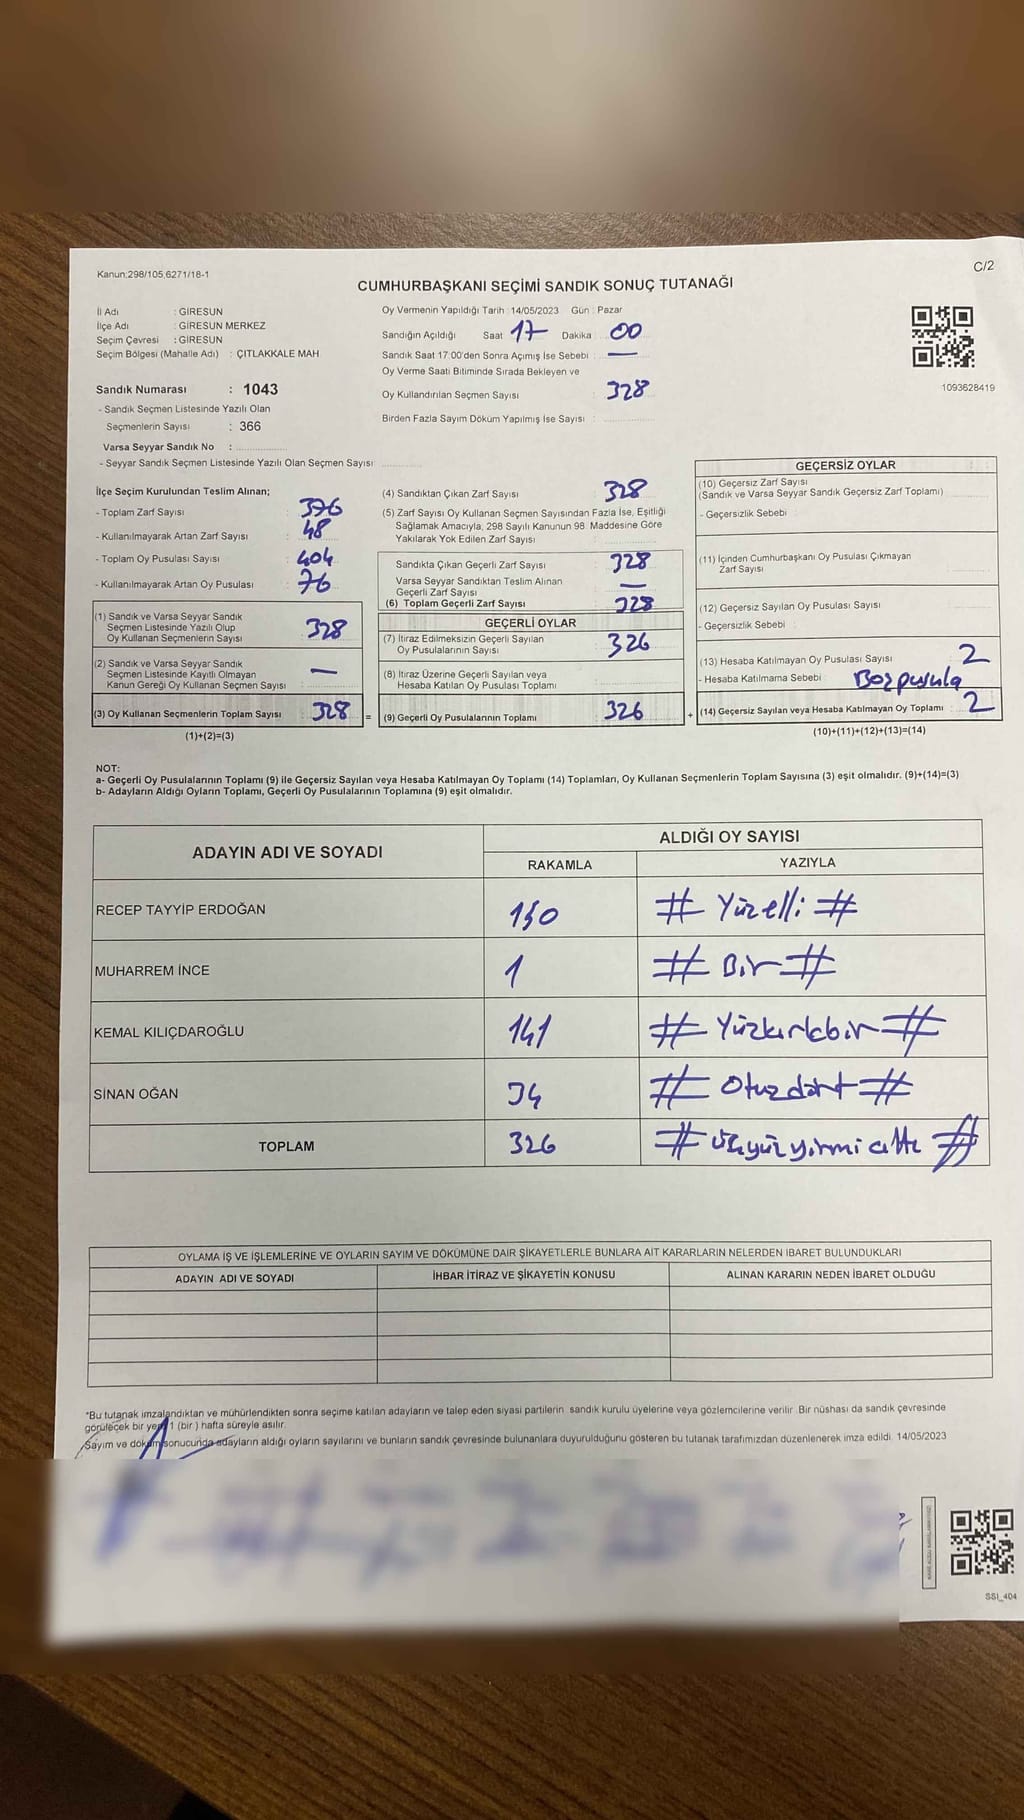 Kanun:298/105,6271/18-1
C/2
CUMHURBAŞKANI SEÇİMİ SANDIK SONUÇ TUTANAĞI
İl Adı : GİRESUN
İlçe Adı : GİRESUN MERKEZ
Seçim Çevresi : GİRESUN
Seçim Bölgesi (Mahalle Adı) : ÇITLAKKALE MAH
Sandık Numarası : 1043
- Sandık Seçmen Listesinde Yazılı Olan
Seçmenlerin Sayısı : 366
Varsa Seyyar Sandık No :
- Seyyar Sandık Seçmen Listesinde Yazılı Olan Seçmen Sayısı
Oy Vermenin Yapıldığı Tarih :14/05/2023 Gün : Pazar
Sandığın Açıldığı Saat 17 Dakika 00
Sandık Saat 17:00'den Sonra Açımış İse Sebebi : —
Oy Verme Saati Bitiminde Sırada Bekleyen ve
Oy Kullandırılan Seçmen Sayısı : 328
Birden Fazla Sayım Döküm Yapılmış İse Sayısı :
1093628419
İlçe Seçim Kurulundan Teslim Alınan;
- Toplam Zarf Sayısı : 376
- Kullanılmayarak Artan Zarf Sayısı : 48
- Toplam Oy Pusulası Sayısı : 404
- Kullanılmayarak Artan Oy Pusulası : 76
(1) Sandık ve Varsa Seyyar Sandık
Seçmen Listesinde Yazılı Olup
Oy Kullanan Seçmenlerin Sayısı : 328
(2) Sandık ve Varsa Seyyar Sandık
Seçmen Listesinde Kayıtlı Olmayan
Kanun Gereği Oy Kullanan Seçmen Sayısı : —
(3) Oy Kullanan Seçmenlerin Toplam Sayısı : 328 =
(1)+(2)=(3)
(4) Sandıktan Çıkan Zarf Sayısı : 328
(5) Zarf Sayısı Oy Kullanan Seçmen Sayısından Fazla İse, Eşitliği
Sağlamak Amacıyla, 298 Sayılı Kanunun 98. Maddesine Göre
Yakılarak Yok Edilen Zarf Sayısı :
Sandıkta Çıkan Geçerli Zarf Sayısı : 328
Varsa Seyyar Sandıktan Teslim Alınan
Geçerli Zarf Sayısı : —
(6) Toplam Geçerli Zarf Sayısı : 328
GEÇERLİ OYLAR
(7) İtiraz Edilmeksizin Geçerli Sayılan
Oy Pusulalarının Sayısı : 326
(8) İtiraz Üzerine Geçerli Sayılan veya
Hesaba Katılan Oy Pusulası Toplamı :
(9) Geçerli Oy Pusulalarının Toplamı : 326 +
GEÇERSİZ OYLAR
(10) Geçersiz Zarf Sayısı
(Sandık ve Varsa Seyyar Sandık Geçersiz Zarf Toplamı)
- Geçersizlik Sebebi :
(11) İçinden Cumhurbaşkanı Oy Pusulası Çıkmayan
Zarf Sayısı
(12) Geçersiz Sayılan Oy Pusulası Sayısı :
- Geçersizlik Sebebi :
(13) Hesaba Katılmayan Oy Pusulası Sayısı : 2
- Hesaba Katılmama Sebebi : Boş pusula
(14) Geçersiz Sayılan veya Hesaba Katılmayan Oy Toplamı : 2
(10)+(11)+(12)+(13)=(14)
NOT:
a- Geçerli Oy Pusulalarının Toplamı (9) ile Geçersiz Sayılan veya Hesaba Katılmayan Oy Toplamı (14) Toplamları, Oy Kullanan Seçmenlerin Toplam Sayısına (3) eşit olmalıdır. (9)+(14)=(3)
b- Adayların Aldığı Oyların Toplamı, Geçerli Oy Pusulalarının Toplamına (9) eşit olmalıdır.
ADAYIN ADI VE SOYADI
ALDIĞI OY SAYISI
RAKAMLA YAZIYLA
RECEP TAYYİP ERDOĞAN 150 # Yüzelli #
MUHARREM İNCE 1 # Bir #
KEMAL KILIÇDAROĞLU 141 # Yüzkırkbir #
SİNAN OĞAN 34 # Otuzdört #
TOPLAM 326 # üçyüzyirmialtı #
OYLAMA İŞ VE İŞLEMLERİNE VE OYLARIN SAYIM VE DÖKÜMÜNE DAİR ŞİKAYETLERLE BUNLARA AİT KARARLARIN NELERDEN İBARET BULUNDUKLARI
ADAYIN ADI VE SOYADI İHBAR İTİRAZ VE ŞİKAYETİN KONUSU ALINAN KARARIN NEDEN İBARET OLDUĞU
*Bu tutanak imzalandıktan ve mühürlendikten sonra seçime katılan adayların ve talep eden siyasi partilerin sandık kurulu üyelerine veya gözlemcilerine verilir. Bir nüshası da sandık çevresinde
görülecek bir yere 1 (bir ) hafta süreyle asılır.
Sayım ve döküm sonucunda adayların aldığı oyların sayılarını ve bunların sandık çevresinde bulunanlara duyurulduğunu gösteren bu tutanak tarafımızdan düzenlenerek imza edildi. 14/05/2023
SSI_404